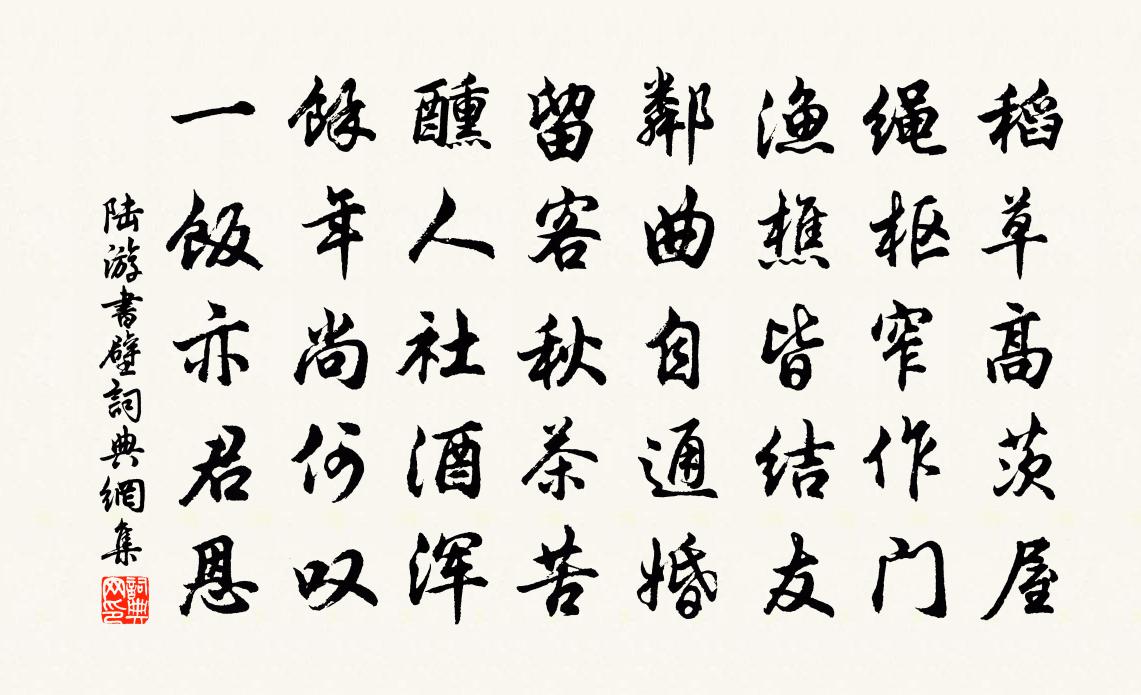 稻草高茨屋
绳枢窄作门
渔樵皆结友
鄰曲自通婚
留客秋茶苦
醺人社酒浑
馀年尚何叹
一饭亦君恩
陆游書壁詞典網集
詞典网印